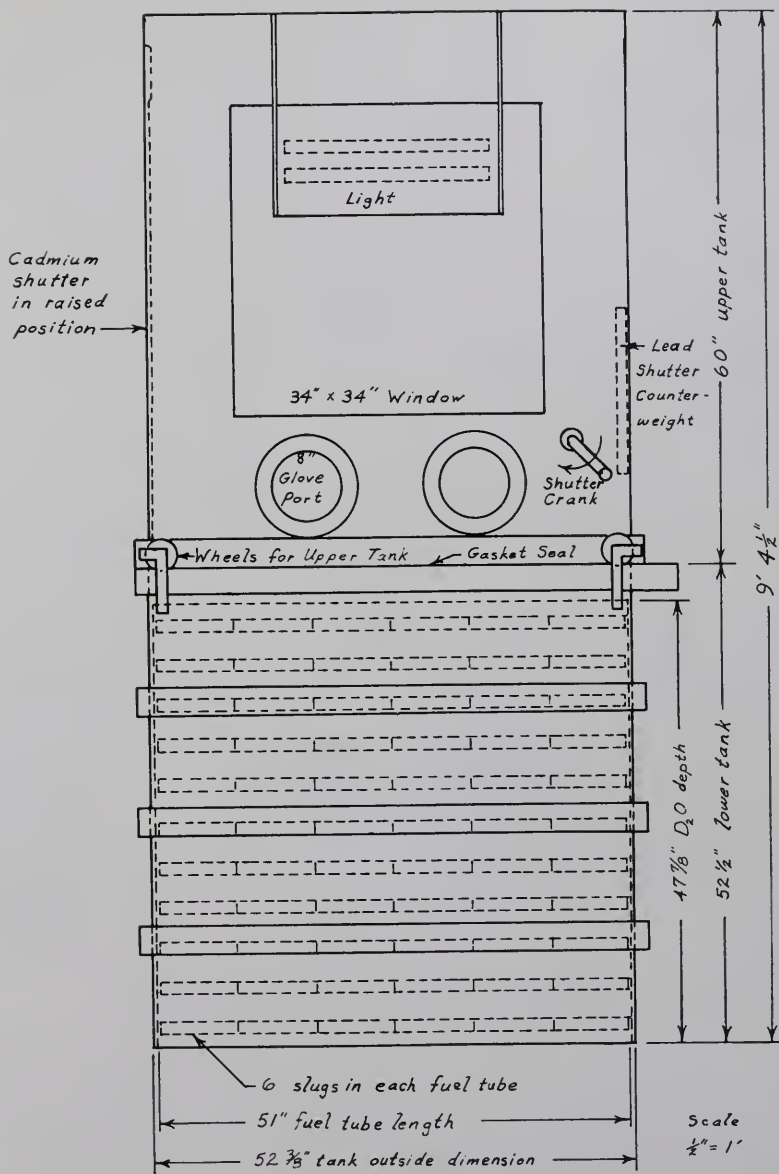 Light
Cadmium
shutter
in raised
position
34" x 34" Window
Lead
Shutter
Counter-
weight
60" upper tank
9' 4 1/2"
8"
Glove
Port
Shutter
Crank
Wheels for Upper Tank
Gasket Seal
47 7/8" D₂O depth
52 1/2" lower tank
6 slugs in each fuel tube
51" fuel tube length
52 3/8" tank outside dimension
Scale
1/2" = 1'